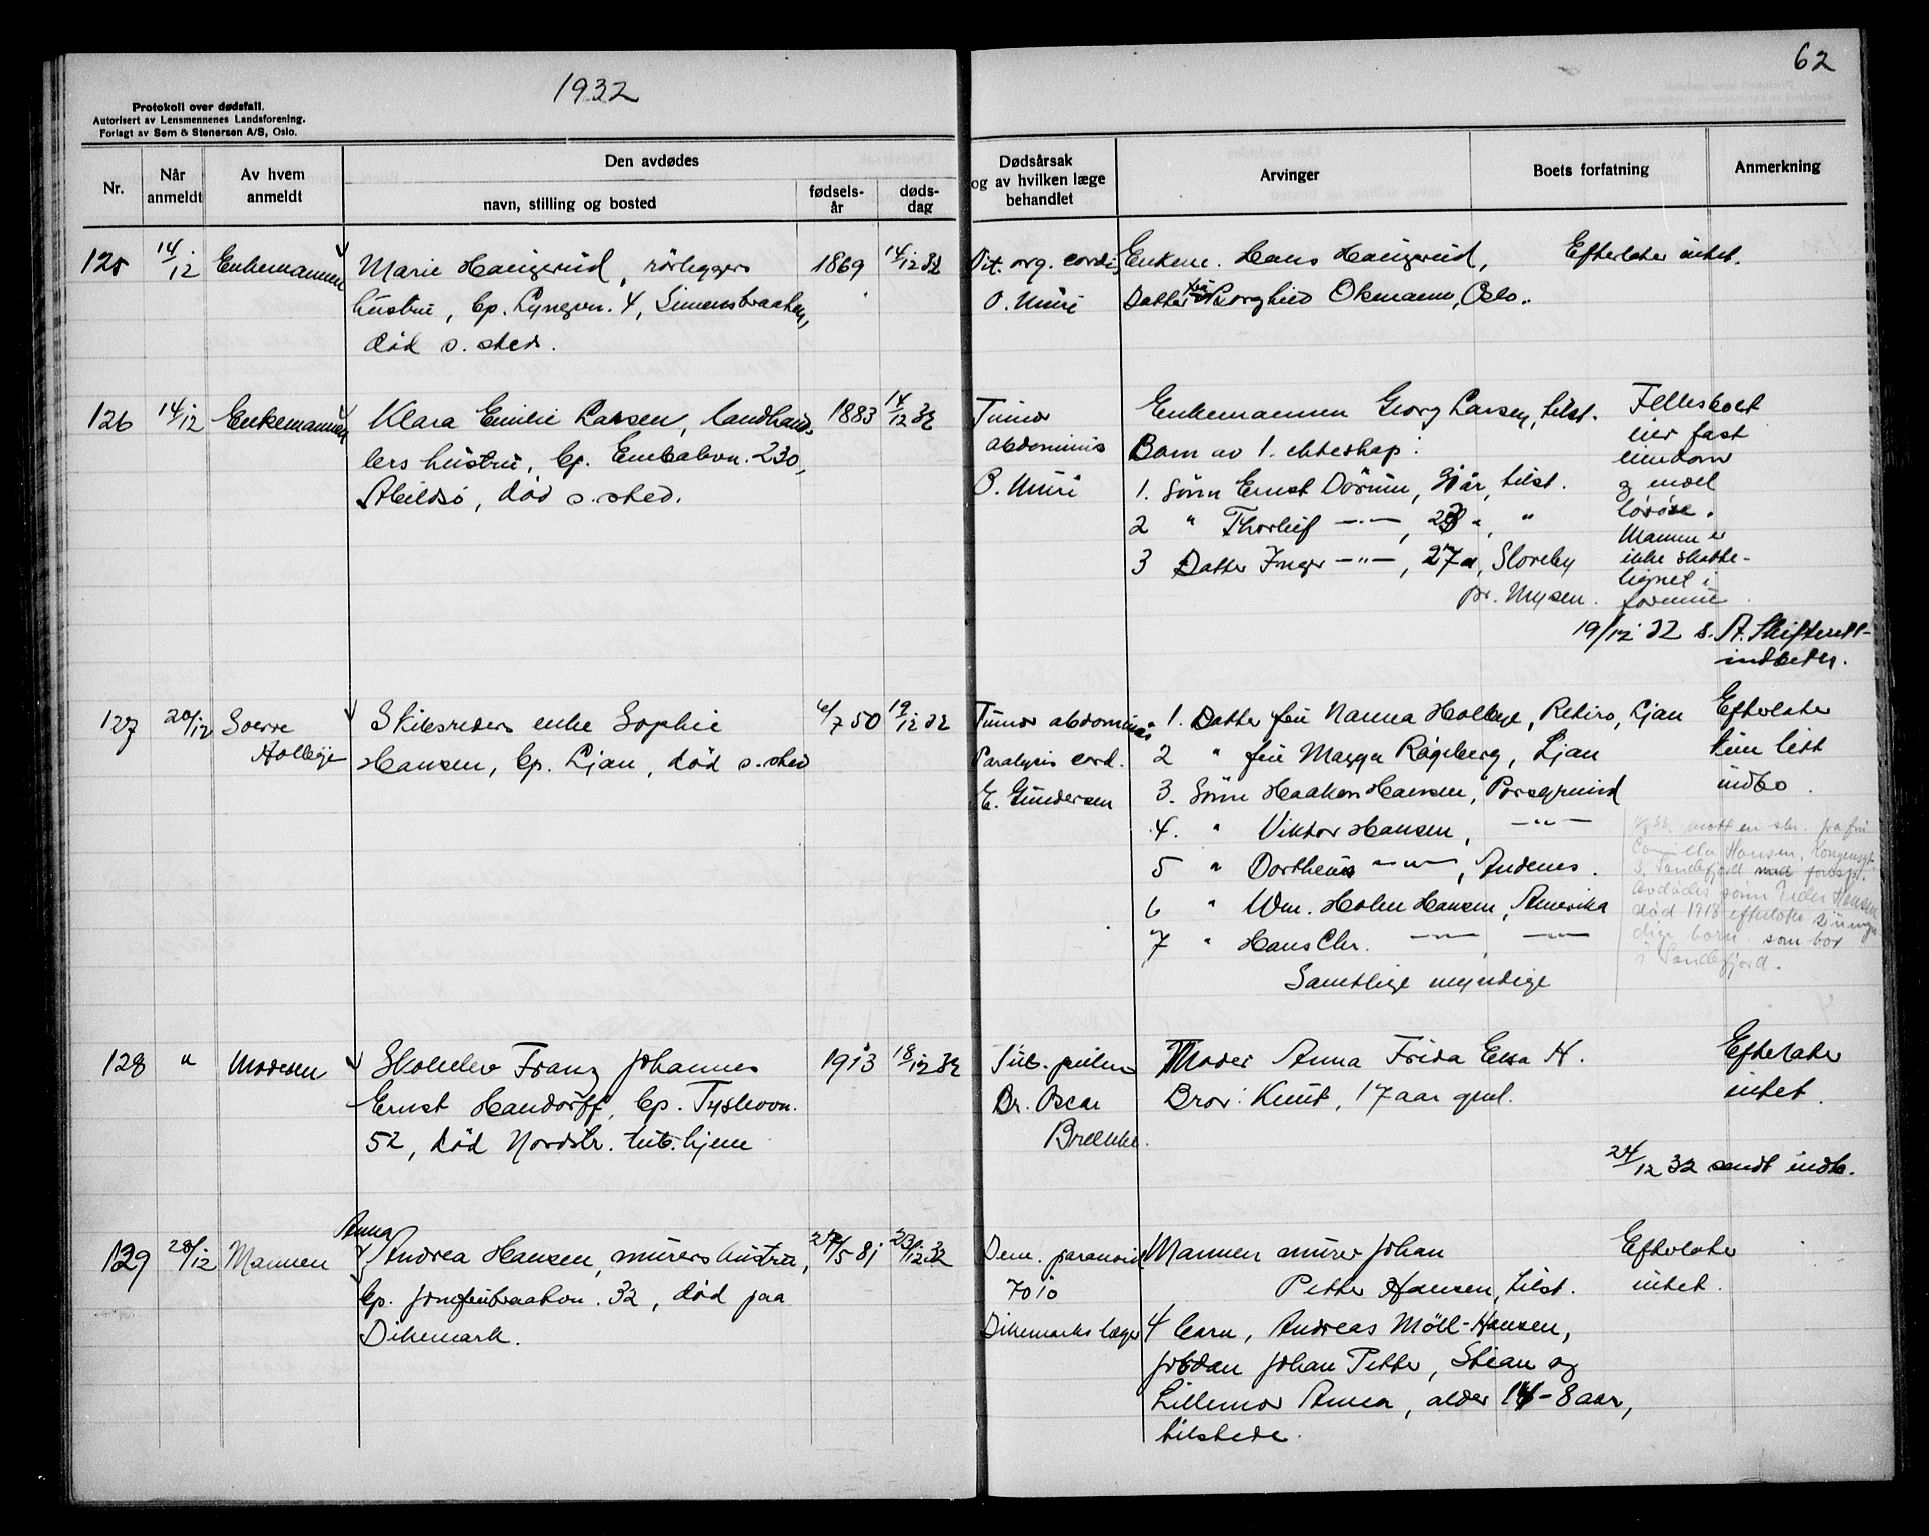 1932
62
Protokoll over dødsfall.
Autorisert av Lensmennenes Landsforening.
Forlagt av Sem & Stenersen A/S, Oslo.
Nr.
Når anmeldt
Av hvem anmeldt
Den avdødes
navn, stilling og bosted
fødsels-år
døds-dag
Dødsårsak
og av hvilken læge
behandlet
Arvinger
Boets forfatning
Anmerkning
125 14/12 Enkemannen Marie Haugerud, rørleggers 1869 14/12 32 Vit. org. cordis Enkem. Hans Haugerud, Efterlater intet.
hustru, bp. Lyngvn. 4, Simensbraaten, O. Muri Datter fru Borghild Okmann, Oslo.
død s. sted.
126 14/12 Enkemannen Klara Emilie Larsen, landhand- 1883 14/12 32 Tumor Enkemannen Georg Larsen, tilst. Fellesboet
lers hustru, bp. Enebakvn. 230, abdominis Barn av 1. ekteskap: eier fast
eiendom
Abildsø, død s. sted. O. Muri 1. Sønn Ernst Dørum, år, tilst. og endel
2 " Thorleif —"—, " løsøre.
Mannen er
3 Datter Inger —"—, 27 ", Sloreby ikke skatte-
lignet i
pr. Mysen. formue
19/12 32 s. A. Skifterett-
indber.
127 20/12 Sverre Skibsreders enke Sophie 6/7 50 19/12 32 Tumor abdominis 1. Datter fru Nanna Holbye, Retiro, Ljan Efterlater
Holbye Hansen, bp. Ljan, død s. sted Paralysis cord. 2 " fru Magga Rögeberg, Ljan kun litt
E. Gundersen 3. Sønn Haakon Hansen, Porsgrund indbo.
4. " Viktor Hansen, —"—
5 " Dortheus —"—, Andenes.
6 " Wm. Holm Hansen, Amerika
7 " Hans Chr. —"— —"—
Samtlige myndige
mott en skr. fra fru
Camilla Hansen, Kongensgt.
3, Sandefjord med foresp.
Avdødes sønn Peder Hansen
død 1918 efterlate umyn
dige barn som bor
i Sandefjord.
128 " Moderen Skoleelev Franz Johannes 1913 18/12 32 Tub. pulm Moder Anna Frida Elsa H. Efterlater
Ernst Handorff, bp. Tyslevvn. Dr. Oscar Bror: Knut, 17 aar gml. intet.
52, død Nordstr. tub. hjem Brække.
24/12 32 sendt indb.
129 28/12 Mannen Anna Andrea Hansen, murers hustru, 27/5 81 23/12 32 Dem. paranoid. Mannen murer Johan Efterlater
bp. Jomfrubraatvn. 32, død paa Petter Hansen, tilst. intet.
Dikemark. Dikemarks læger 4 barn, Andreas Möll-Hansen,
Johan Petter, Stian og
Lillemor Anna, alder 14-8 aar,
tilstede.